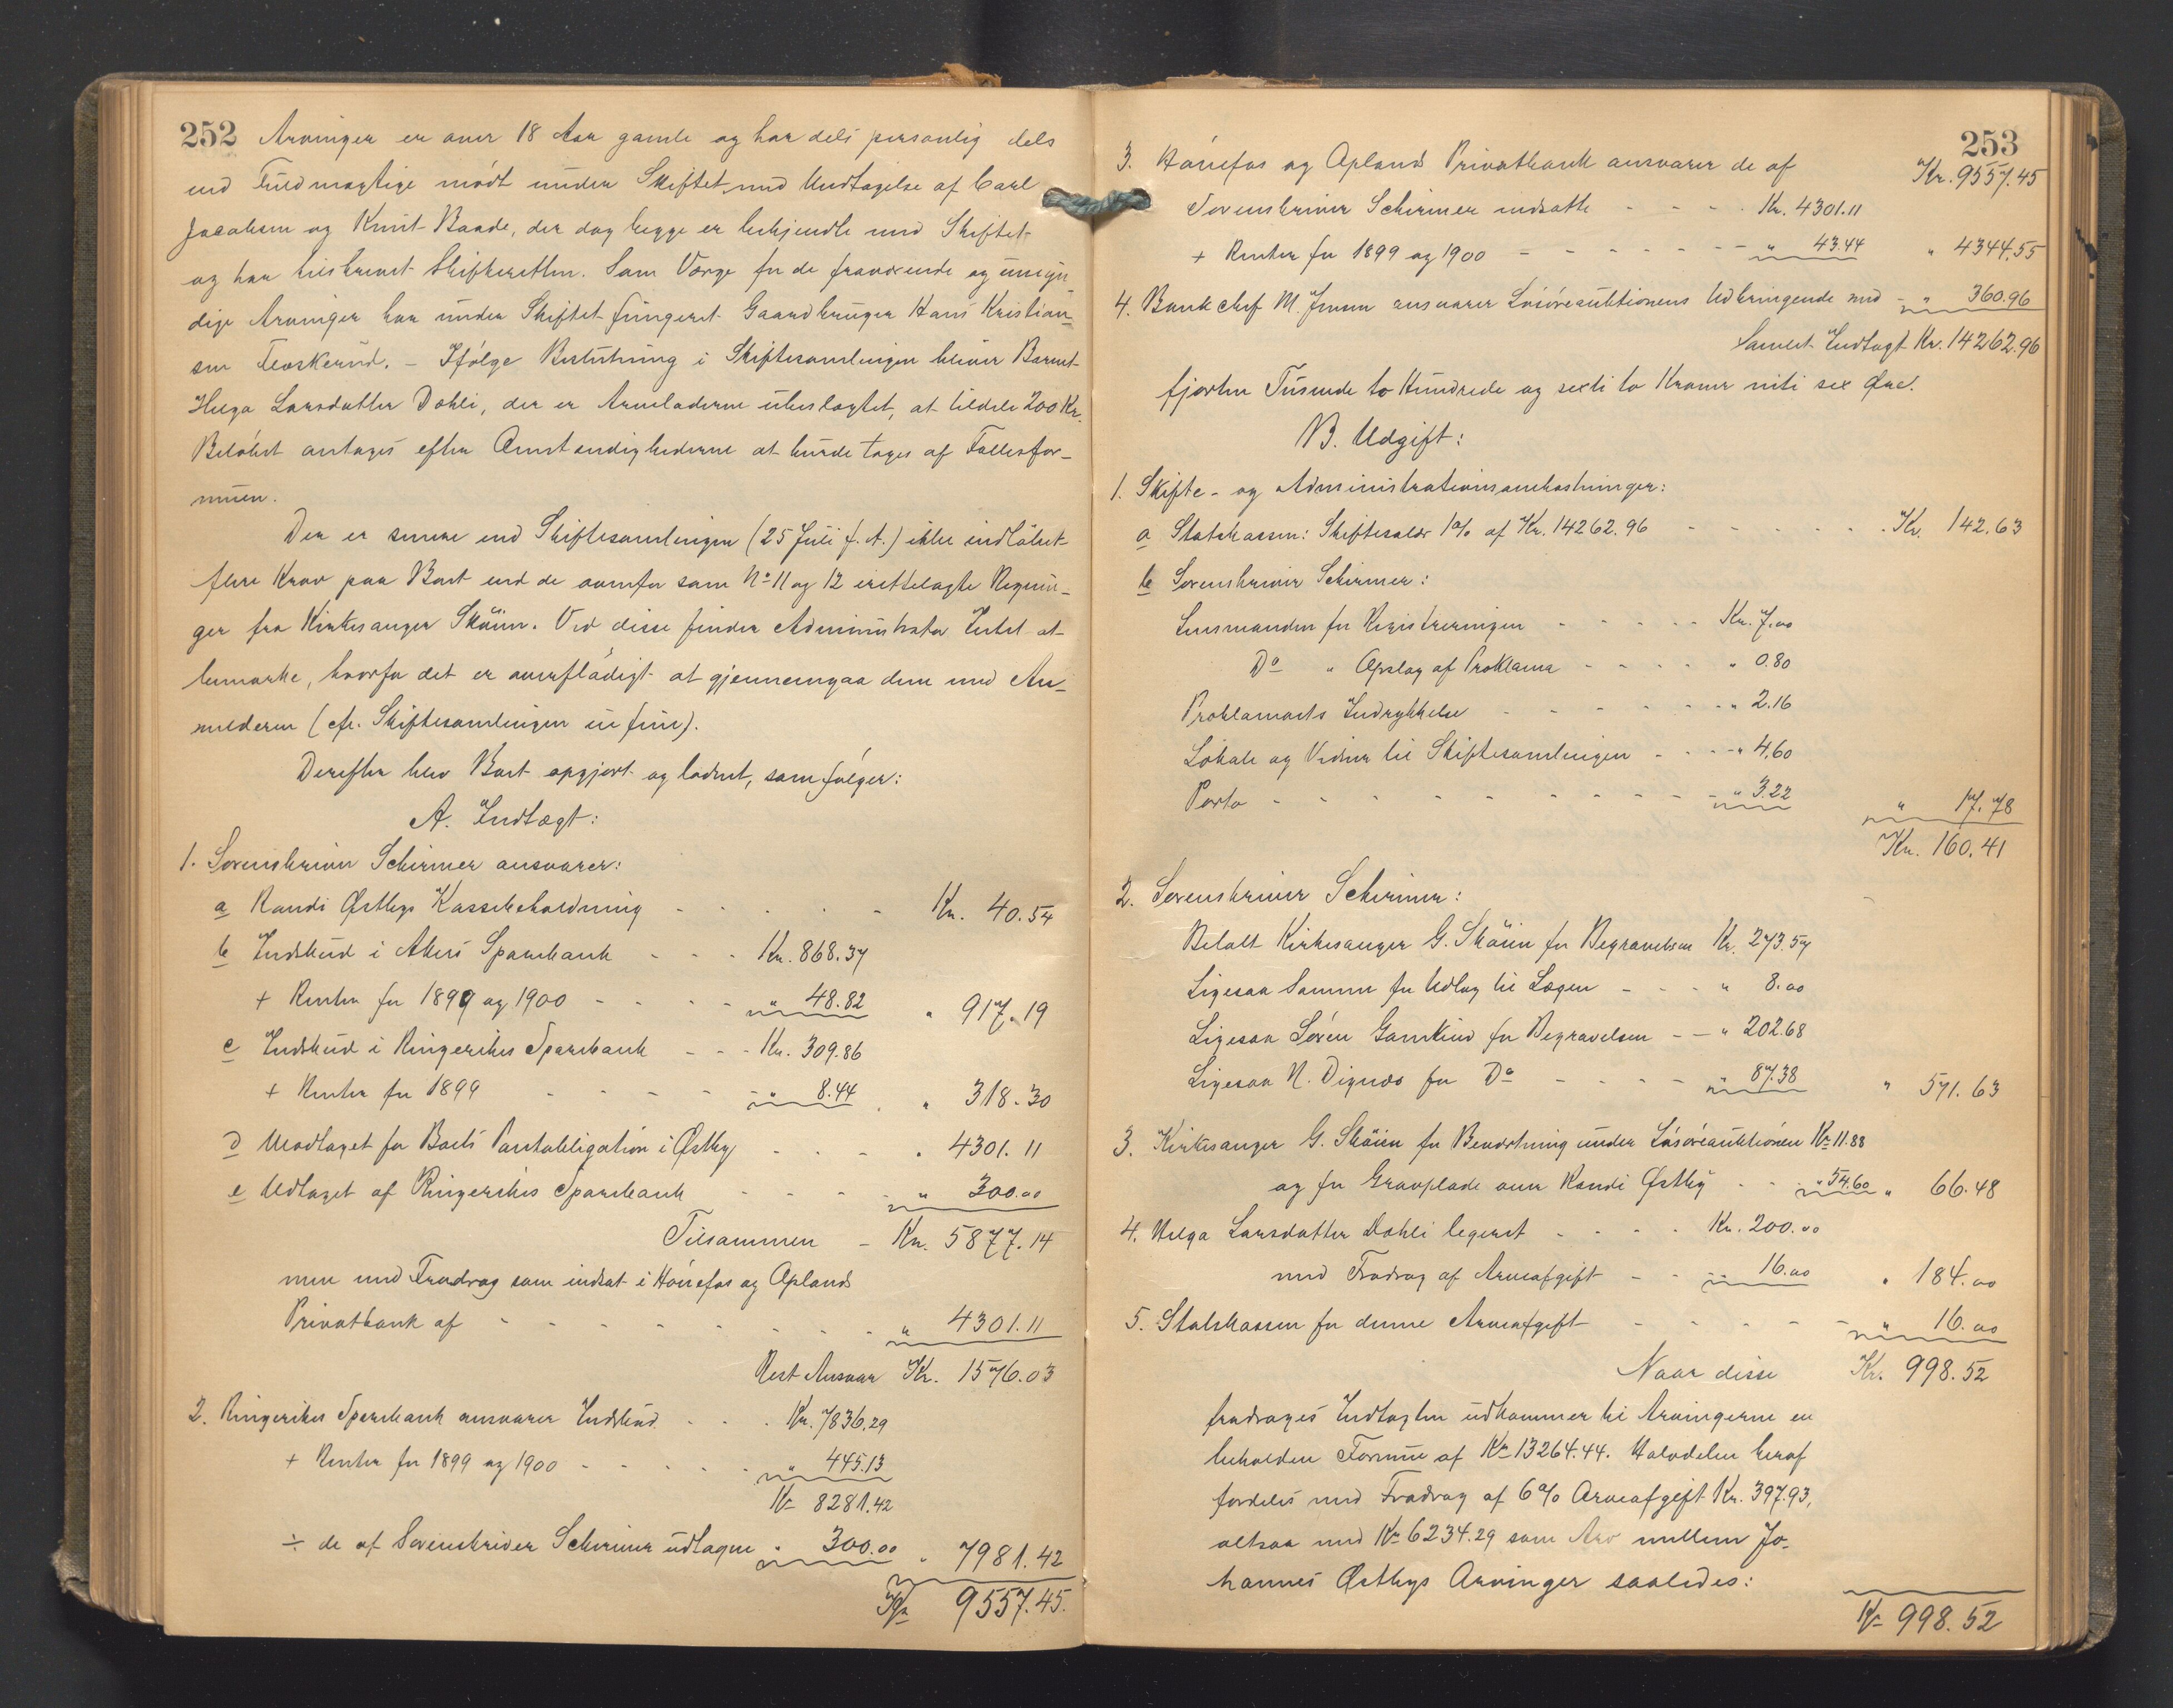 252 Arvinger er over 18 Aar gamle og har dels personlig dels
ved Fuldmægtige mödt under Skiftet med Undtagelse af Carl
Jacobsen og Knut Baade, der dog begge er bekjendte med Skiftet
og har tilskrevet Skifteretten. Som Værge for de fraværende og umyn-
dige Arvinger har under Skiftet fungeret Gaardbruger Hans Kristian-
sen Fleskerud. – Ifölge Beslutning i Skiftesamlingen bliver Barnet
Helga Larsdatter Dahli, der er Arveladerne ubeslægtet, at tildele 200 Kr.
Belöbet antages efter Omstændighederne at burde tages af Fællesfor-
muen.
Der er senere end Skiftesamlingen (25 Juli f. A.) ikke indlöbet
flere Krav paa Boet end de ovenfor som No 11 og 12 irettelagte Regnin-
ger fra Kirkesanger Sköien. Ved disse finder Administrator Intet at
bemærke, hvorfor det er overflödigt at gjennemgaa dem med An-
melderen (cfr. Skiftesamlingen in fine).
Derefter blev Boet opgjort og loddet, som fölger:
A. Indtægt:
1. Sorenskriver Schirmer ansvarer:
a Randi Østbys Kassebeholdning - - - - - Kr. 40.54
b Indskud i Akers Sparebank - - - Kr. 868.37
+ Renter for 1899 og 1900 - - - - " 48.82 " 917.19
c Indskud i Ringerikes Sparebank - - - Kr. 309.86
+ Renter for 1899 - - - - - " 8.44 " 318.30
d Modtaget for Boets Pantobligation i Østby - - - - " 4301.11
e Udtaget af Ringerikes Sparebank - - - - " 300.00
Tilsammen - Kr. 5877.14
men med Fradrag som indsat i Hönefos og Oplands
Privatbank af - - - - - - - - " 4301.11
Rest Ansvar Kr. 1576.03
2. Ringerikes Sparebank ansvarer Indskud - - - Kr. 7836.29
+ Renter for 1899 og 1900 - - - - - " 445.13
Kr 8281.42
÷ de af Sorenskriver Schirmer udtagne " 300.00 " 7981.42
Kr 9557.45.
253
Kr. 9557.45
3. Hönefos og Oplands Privatbank ansvarer de af
Sorenskriver Schirmer indsatte - - - - Kr. 4301.11
+ Renter for 1899 og 1900 - - - - - - - " 43.44 " 4344.55
4. Bankchef M. Jensen ansvarer Lösöreauktionens Udbringende med - " 360.96
Samlet Indtægt Kr. 14262.96
fjorten Tusende to Hundrede og sexti to Kroner niti sex Øre.
B. Udgift:
1. Skifte- og Administrationsomkostninger:
a Statskassen: Skiftesalær 1% af Kr. 14262.96 - - - - - - Kr. 142.63
b Sorenskriver Schirmer:
Lensmanden for Registreringen - - - - - Kr. 7.00
Do " Opslag af Proklama - - - - " 0.80
Proklamaets Indrykkelse - - - - - - " 2.16
Lokale og Vidner til Skiftesamlingen - - - - " 4.60
Porto - - - - - - - - - - " 3.22 " 17.78
Kr. 160.41
2. Sorenskriver Schirmer:
Betalt Kirkesanger G. Sköien for Begravelsen Kr. 273.57
Ligesaa Samme for Udlæg til Lægen - - - " 8.00
Ligesaa Sören Gamkinn for Begravelsen - - " 202.68
Ligesaa N. Dignæs for Do - - - - " 87.38 " 571.63
3. Kirkesanger G. Sköien for Bevertning under Lösöreauktionen Kr 11.88
og for Gravplade over Randi Østby - - " 54.60 " 66.48
4. Helga Larsdatter Dahli legeret - - - - Kr. 200.00
med Fradrag af Arveafgift - - " 16.00 " 184.00
5. Statskassen for denne Arveafgift - - - - - " 16.00
Naar disse Kr. 998.52
fradrages Indtægten udkommer til Arvingerne en
beholden Formue af Kr 13264.44. Halvdelen heraf
fordeles med Fradrag af 6% Arveafgift Kr. 397.93,
altsaa med Kr 6234.29 som Arv mellem Jo-
hannes Østbys Arvinger saaledes:
Kr 998.52